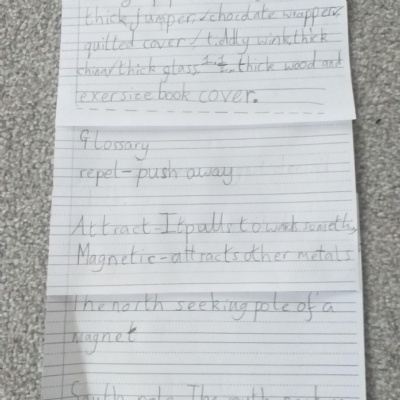 thick Jumper/chocolate wrapper/
quilted cover/tiddly wink thick
china/thick glass thick wood and
exersice book cover.
Glossary
repel-push away
Attract-It pulls towards something
Magnetic-attracts other metals
The north seeking pole of a
magnet
South pole The